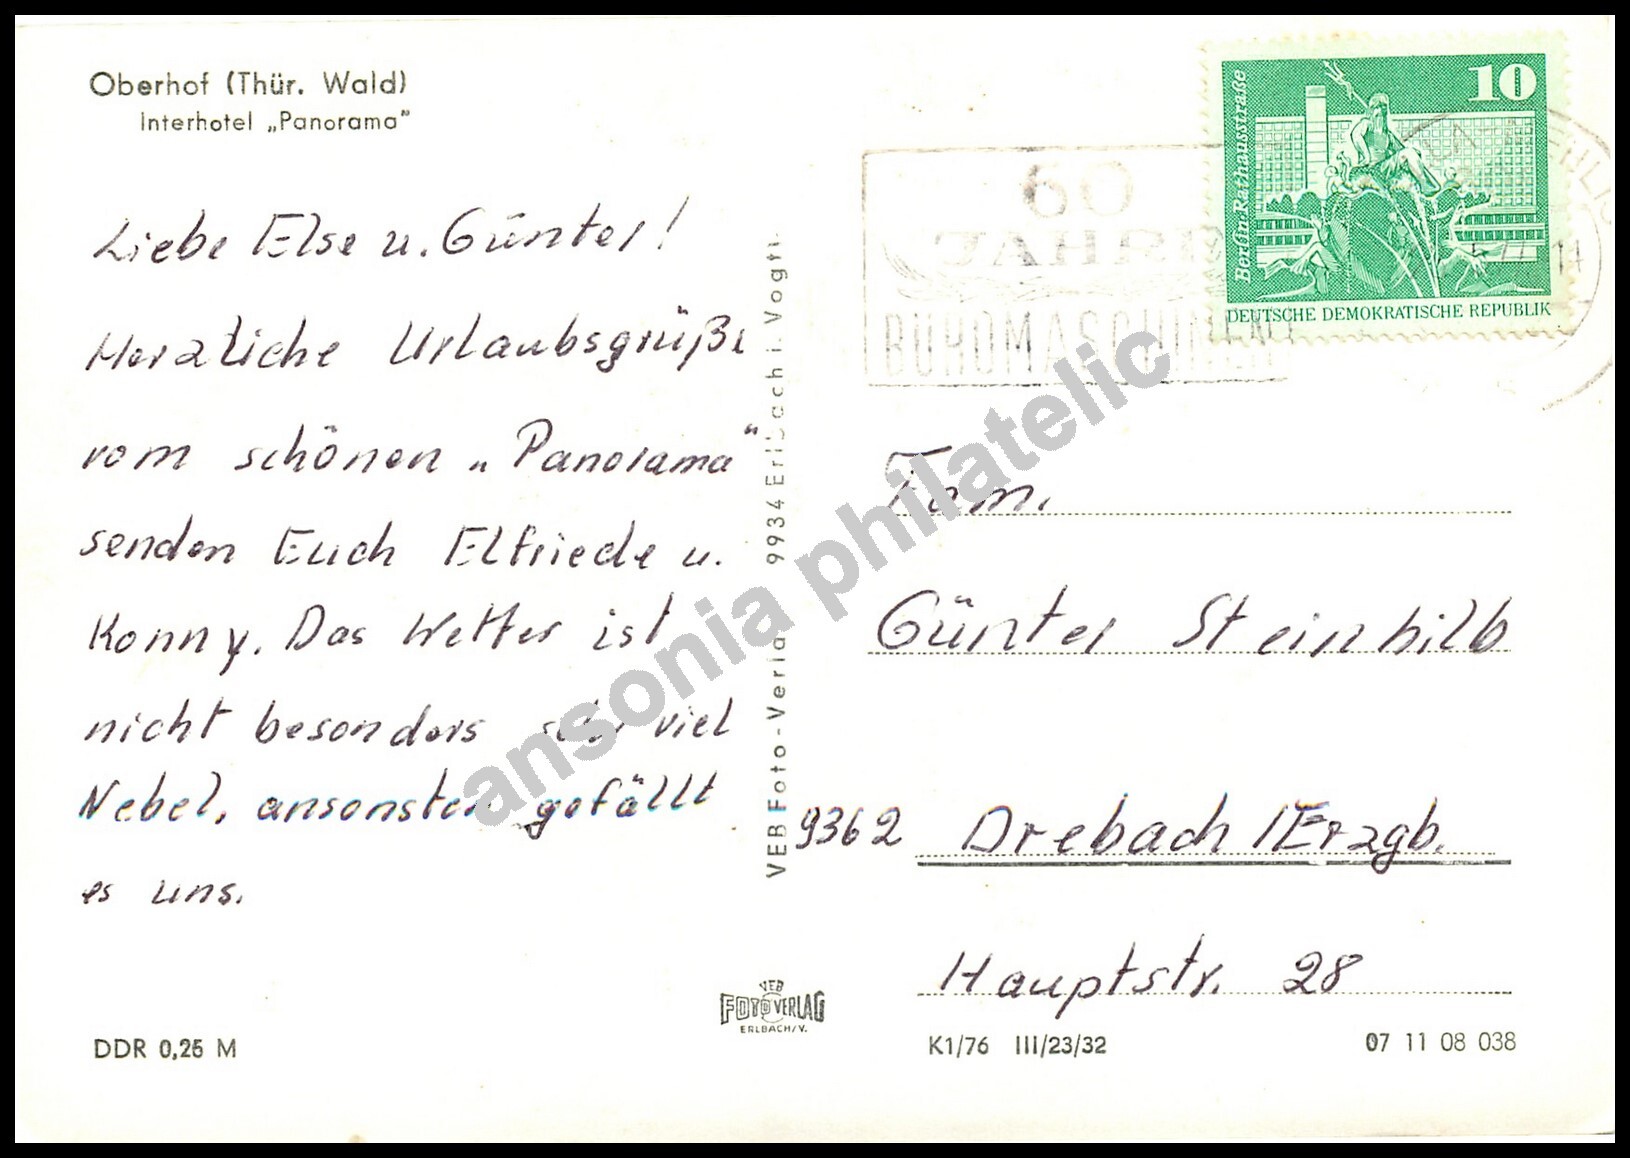 Oberhof (Thür. Wald)
Interhotel „Panorama"
Liebe Else u. Günter!
Herzliche Urlaubsgrüße
vom schönen „Panorama"
senden Euch Elfriede u.
Konny. Das Wetter ist
nicht besonders sehr viel
Nebel, ansonsten gefällt
es uns.
DDR 0,25 M
VEB Foto-Verlag 9934 Erlbach i. Vogtl.
VEB
FOTOVERLAG
ERLBACH/V.
60
BÜROMASCHINEN
10
Berlin·Rathausstraße
DEUTSCHE DEMOKRATISCHE REPUBLIK
Fam.
Günter Steinhilb
9362 Drebach /Erzgb.
Hauptstr. 28
K1/76 III/23/32
07 11 08 038
ansonia philatelic